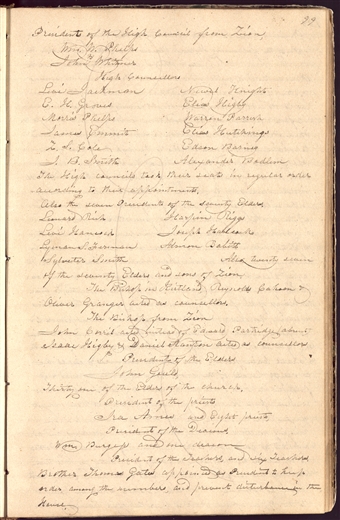 99
President of the High Council from Zion
Wm. W. Phelps
John Whitmer
High Councellors
Levi Jackman Newel Knight
C. H. Groves Elias Higby
Morris Phelps Warren Parrish
James Emmit Elias Hutchings
Edson Barney
J. B. Smith Alexander Badlam
The High councils took their seats in regular order
according to their appointment.
Also the seven Presidents of the seventy Elders
Leonard Rich Harpin Riggs
Levi Hancock Joseph Hancock
Lyman Sherman Almon Babbitt
Sylvester Smith Also twenty seven
of the seventy Elders and sons of Zion,
The Bishop in Kirtland, Reynolds Cahoon &
Oliver Granger acted as counsellors.
The Bishop, from Zion
John Corril acted instead of Edward Partridge, absent
Isaac Higby & Daniel Stanton acted as counsellors
Presidents of the Elders
John Gould
Thirty one of the Elders of the church,
President of the priests
Ira Ames and Eight priests,
President of the Deacons
Wm. Burgess and one deacon
President of the Teachers, and Six Teachers
Brother Thomas Gates, appointed as President to keep
order among the members, and prevent disturbance in the
House.